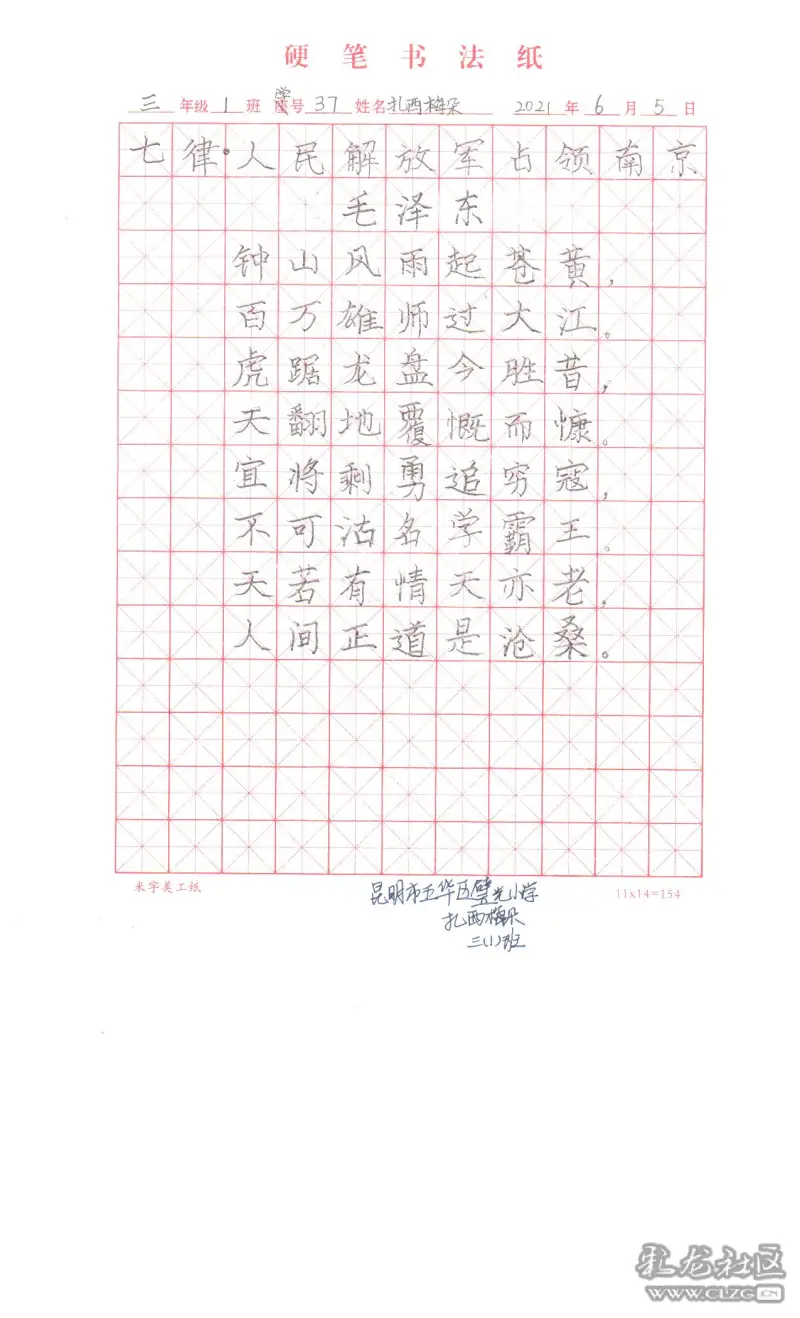 硬笔书法纸
三年级1班学号37姓名扎西梅朵 2021年6月5日
七律·人民解放军占领南京
毛泽东
钟山风雨起苍黄,
百万雄师过大江。
虎踞龙盘今胜昔,
天翻地覆慨而慷。
宜将剩勇追穷寇,
不可沽名学霸王。
天若有情天亦老,
人间正道是沧桑。
米字美工纸
11x14=154
昆明市五华区璧光小学
扎西梅朵
三(1)班
彩龙社区
WWW.CLZG.CN